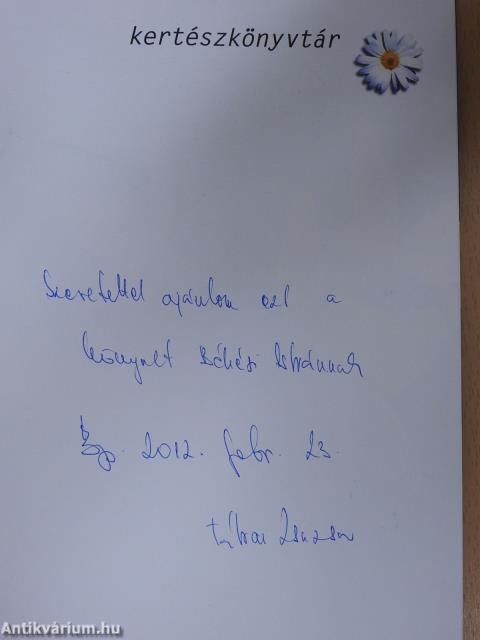 kertészkönyvtár
Szeretettel ajánlom ezt a
könyvet Békési Istvánnak
Bp. 2012. febr. 23.
Zsuzsa
Antikvárium.hu